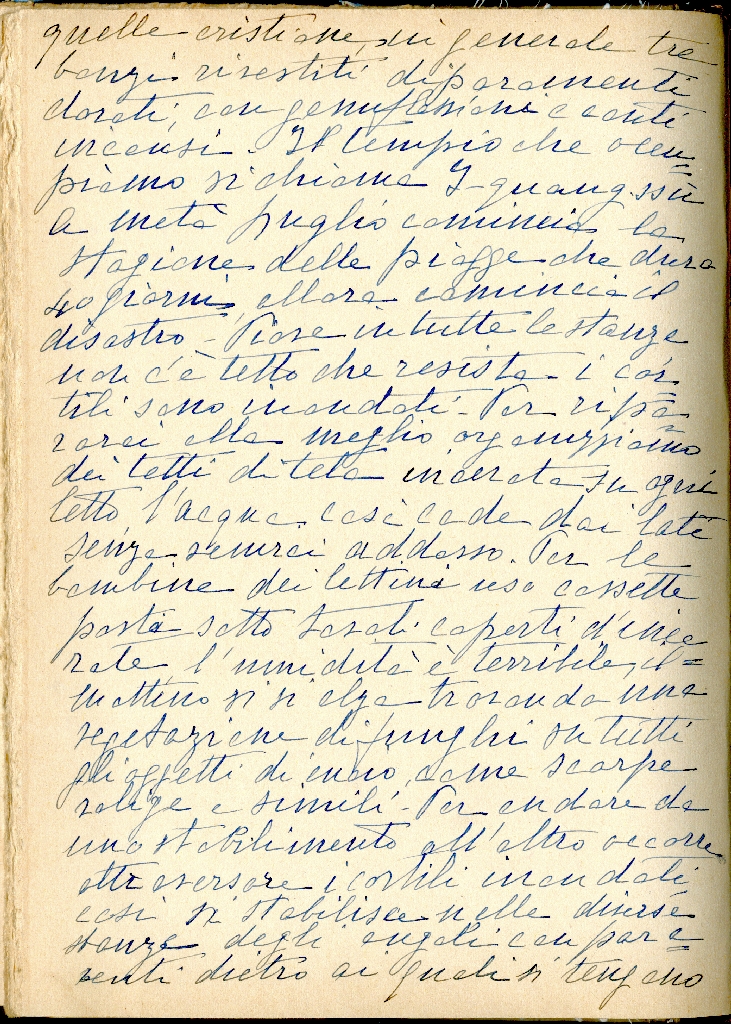 quelle cristiane, in generale tre
bonzi rivestiti di paramenti
dorati, con genuflessioni canti
incensi. Il tempio che occu=
piamo si chiama I-quang-ssü
a metà luglio comincia la
stagione delle piogge che dura
40 giorni, allora comincia il
disastro - Piove in tutte le stanze
non c'è tetto che resista - i cor
tili sono inondati - Per ripa=
rarci alla meglio organizziamo
dei tetti di tela incerata su ogni
letto, l'acqua così cade dai lati
senza venirci addosso. Per le
bambine dei lettini uso cassette
posti sotto tavoli coperti d'ince
rate, l'umidità è terribile, il=
mattino si si alza trovando una
vegetazione di funghi su tutti
gli oggetti di cuoio, come scarpe
valige e simili - Per andare da
uno stabilimento all'altro occorre
attraversare i cortili inondati,
così si stabilisce nelle diverse
stanze degli angoli con para=
venti dietro ai quali si tengono